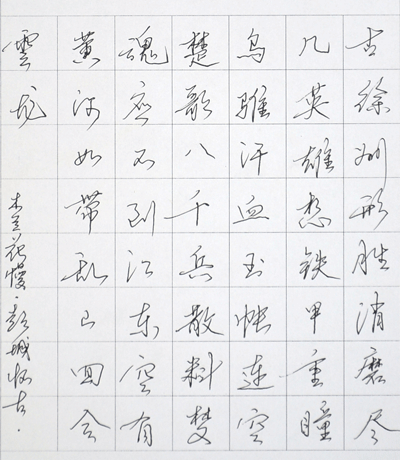 古徐州形胜消磨尽
几英雄想铁甲重瞳
乌骓汗血玉帐连空
楚歌八千兵散料梦
魂应不到江东空有
黄河如带乱山回合
雲龙
木兰花慢·彭城怀古.